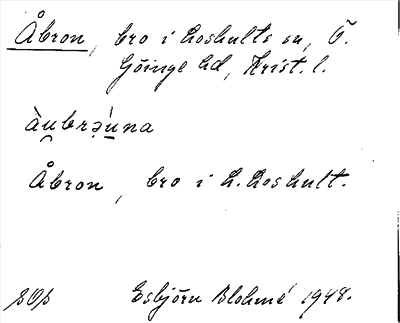 Åbron, bro i Loshults sn, Ö.
Göinge hd, Krist. l.
àu̯brə̀u̯na
Åbron, bro i L. Loshult.
Esbjörn Blohmé 1948.